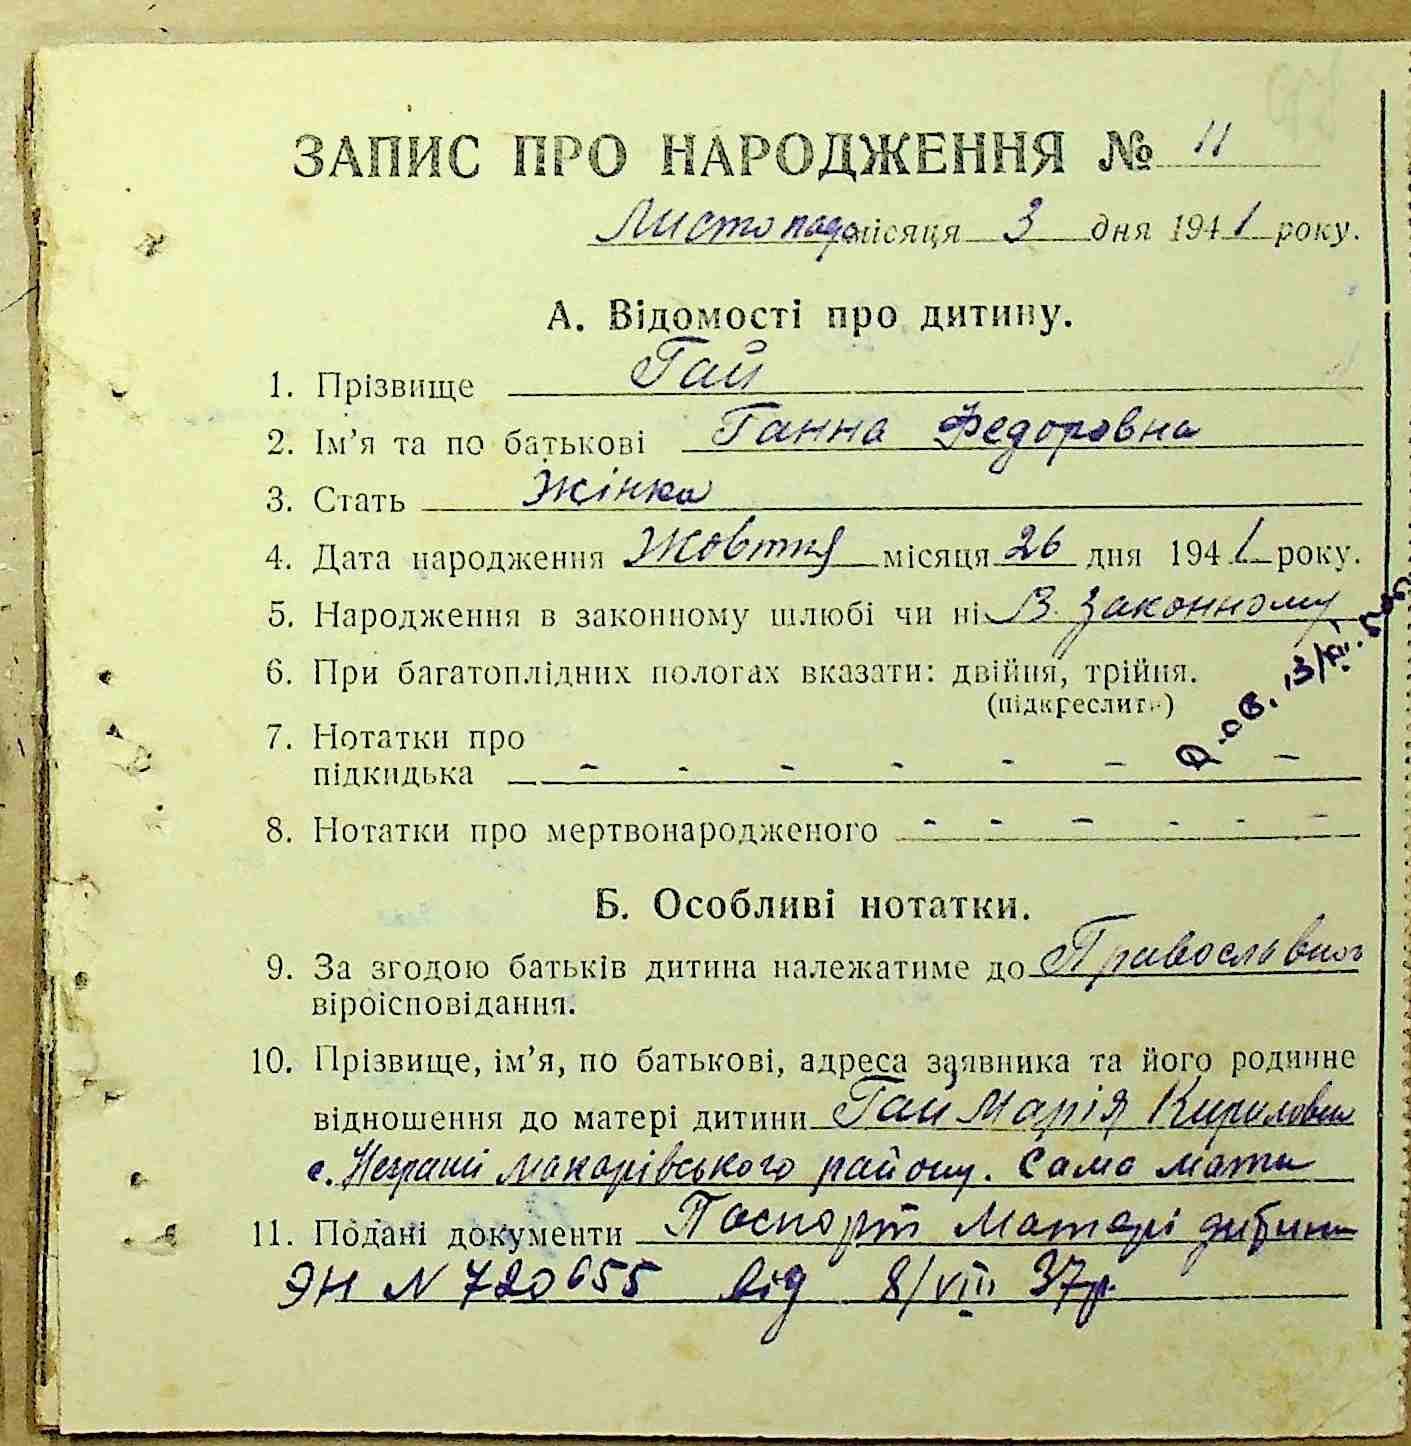 ЗАПИС ПРО НАРОДЖЕННЯ № 11
Листопада місяця 3 дня 1941 року.
А. Відомості про дитину.
1. Прізвище Гай
2. Ім’я та по батькові Ганна Федоровна
3. Стать Жінка
4. Дата народження Жовтня місяця 26 дня 1941 року.
5. Народження в законному шлюбі чи ні В законному
6. При багатоплідних пологах вказати: двійня, трійня.
(підкреслити)
7. Нотатки про
підкидька - - - - - - -
8. Нотатки про мертвонародженого - - - - - -
Б. Особливі нотатки.
9. За згодою батьків дитина належатиме до Православного
віроісповідання.
10. Прізвище, ім’я, по батькові, адреса заявника та його родинне
відношення до матері дитини Гай Марія Кириловна
с. Макарівського району. Сама мати
11. Подані документи Паспорт Матері дитини
ЭН N 720655 від 8/VIII 37р.